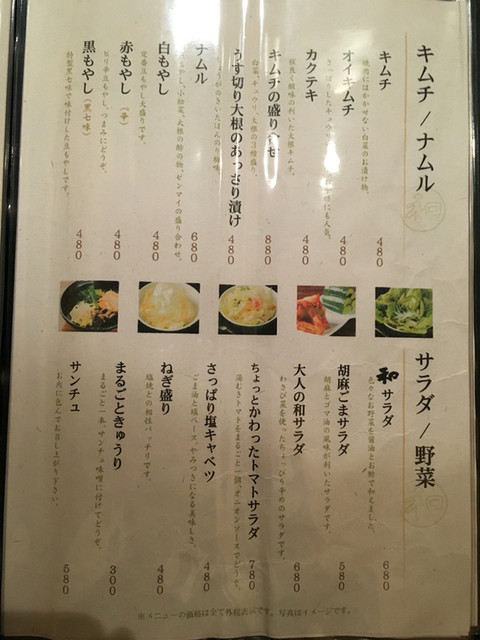 キムチ / ナムル
キムチ
焼肉にはかかせない白菜のお漬け物。
480
オイキムチ
480
カクテキ
程良く酸味の利いた大根キムチ。
480
キムチの盛り合せ
白菜、キュウリ、大根の3種盛り。
880
うす切り大根のあっさり漬け
480
ナムル
680
白もやし
定番豆もやし大盛りです。
480
赤もやし（辛）
ピリ辛豆もやし、つまみにどうぞ。
480
黒もやし（黒七味）
特製黒七味で味付けした豆もやしです。
480
サラダ / 野菜
和サラダ
色々なお野菜を醤油とお酢で和えました。
680
胡麻ごまサラダ
胡麻とゴマ油の風味が利いたサラダです。
580
大人の和サラダ
わさび菜を使ったちょっぴり辛めのサラダです。
680
ちょっとかわったトマトサラダ
湯むきトマトをまるごと一個、オニオンソースでどうぞ。
780
さっぱり塩キャベツ
ごま油と塩ベース、やみつきになる美味しさ。
480
ねぎ盛り
塩焼との相性バッチリです。
480
まるごときゅうり
まるごと一本、サンチュ味噌に付けてどうぞ。
300
サンチュ
お肉に包んでお召し上がり下さい。
580
※メニューの価格は全て外税表示です。写真はイメージです。